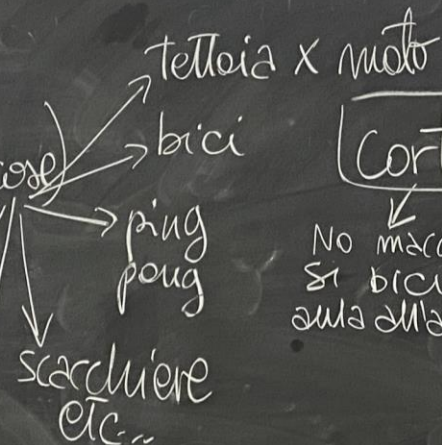 tettoia x moto
bici
cose)
ping
pong
scacchiere
etc...
Cort
No macc
Si bici
aula all'a